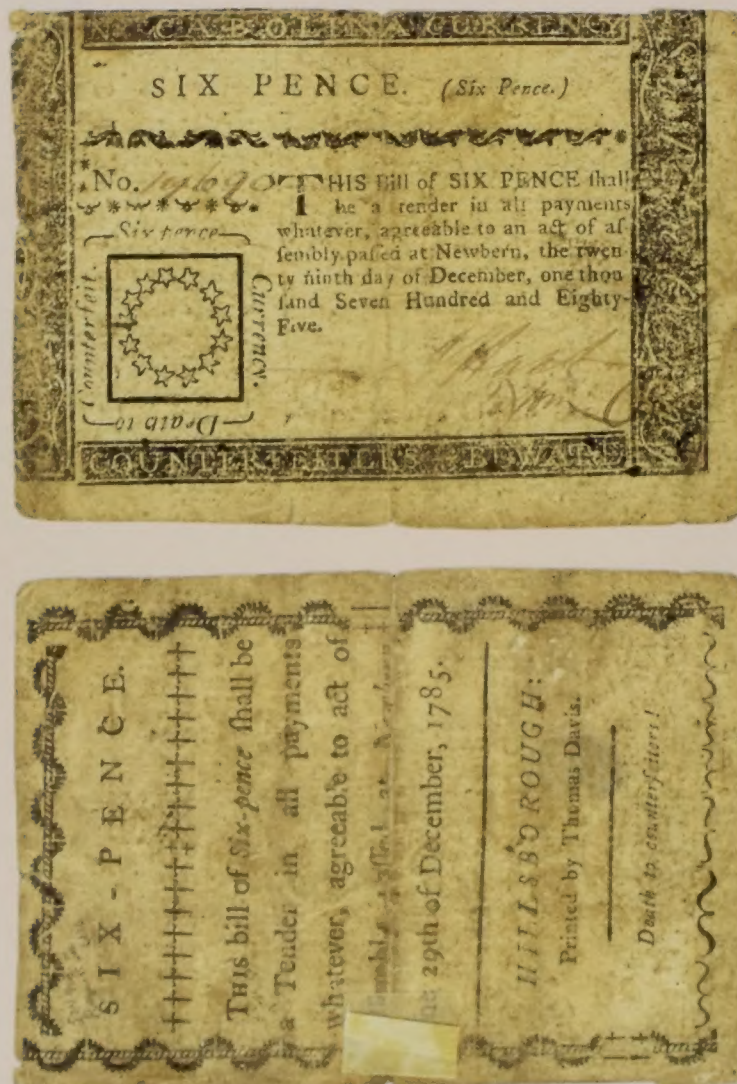 No. CAROLINA CURRENCY
SIX PENCE. (Six Pence.)
No. 19690
THIS Bill of SIX PENCE ſhall
be a tender in all payments
whatever, agreeable to an act of aſ
ſembly paſſed at Newbern, the twen
ty ninth day of December, one thou
ſand Seven Hundred and Eighty-
Five.
Six pence
Currency.
Death to
Counterfeit.
COUNTERFEITERS BEWARE
SIX-PENCE.
THIS bill of Six-pence ſhall be
a Tender in all payments
whatever, agreeable to act of
paſſed at
29th of December, 1785.
HILLSBOROUGH:
Printed by Thomas Davis.
Death to counterfeiters!